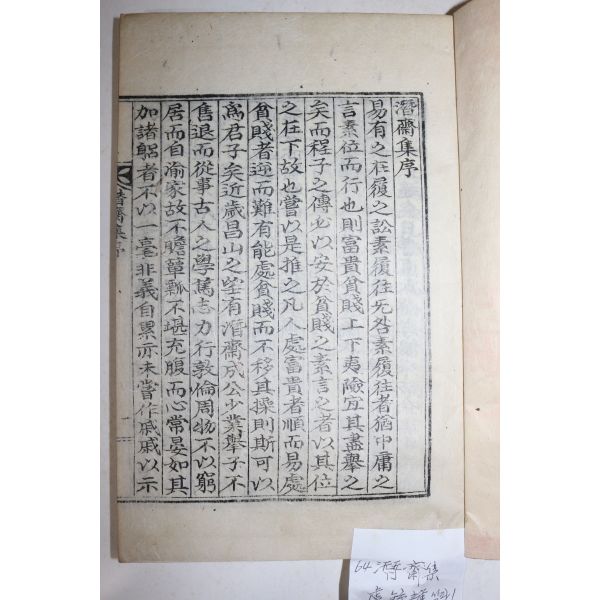 潛齋集序
易有之在履之訟素履往无咎素履往者猶中庸之
言素位而行也則富貴貧賤上下夷險宜其盡擧之
矣而程子之傳必以安於貧賤之素言之者以其位
之在下故也嘗以是推之凡人處富貴者順而易處
貧賤者逆而難有能處貧賤而不移其操則斯可以
爲君子矣近歲昌山之望有潛齋成公少業擧子不
售退而從事古人之學篤志力行敦倫周物不以窮
居而自渝家故不贍簞瓢不堪充腹而心常晏如其
加諸躬者不以一毫非義自累亦未嘗作戚戚以示
潛齋集序
一
64 潛齋集